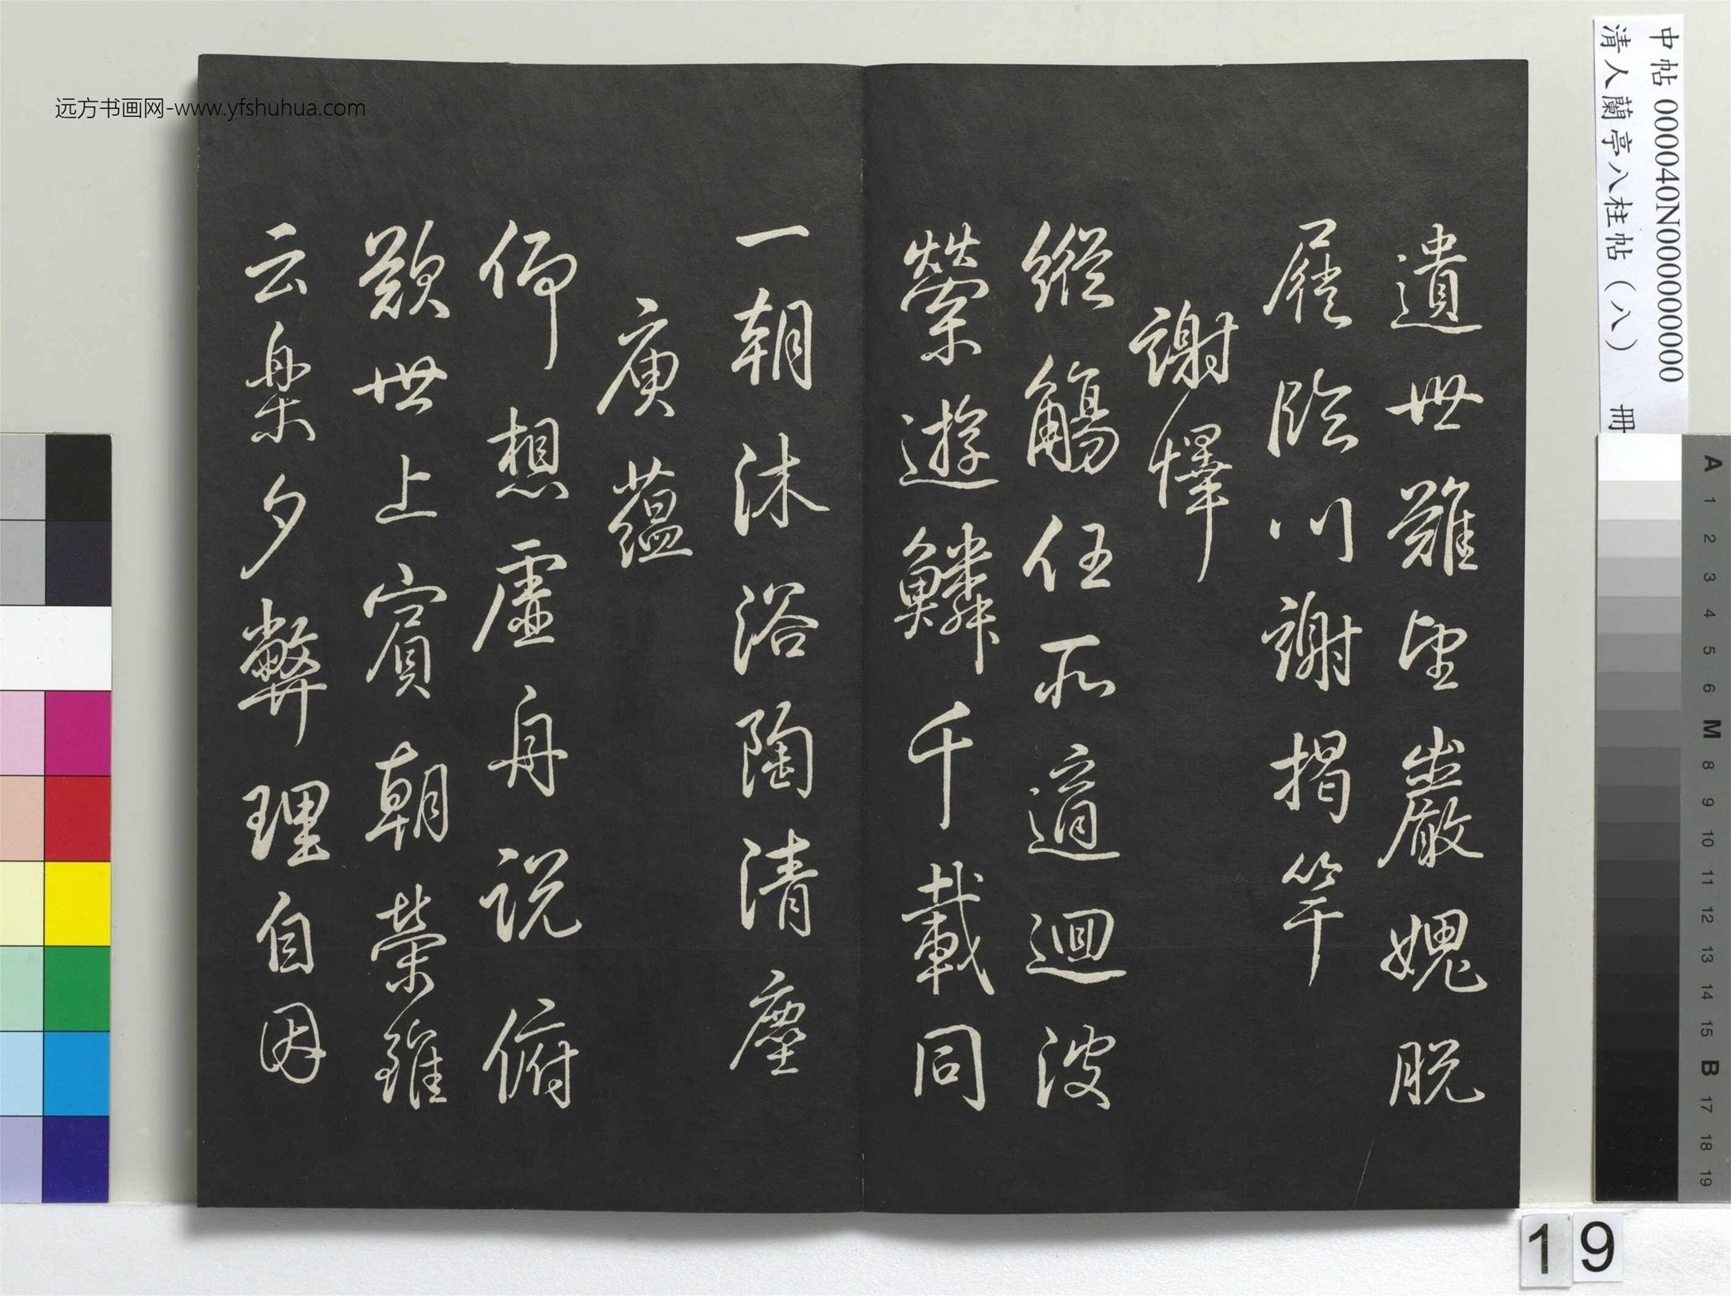 遺世難望巖媿脫
屣臨川謝揭竿
謝懌
縱觴任所適迴波
縈遊鱗千載同
一朝沐浴陶清塵
庾蘊
仰想虛舟說俯
歎世上賓朝榮雖
云樂夕弊理自因
中帖 000040N000000000
清人蘭亭八柱帖（八） 冊
远方书画网-www.yfshuhua.com
A
1
2
3
4
5
6
M
8
9
10
11
12
13
14
15
B
17
18
19
19